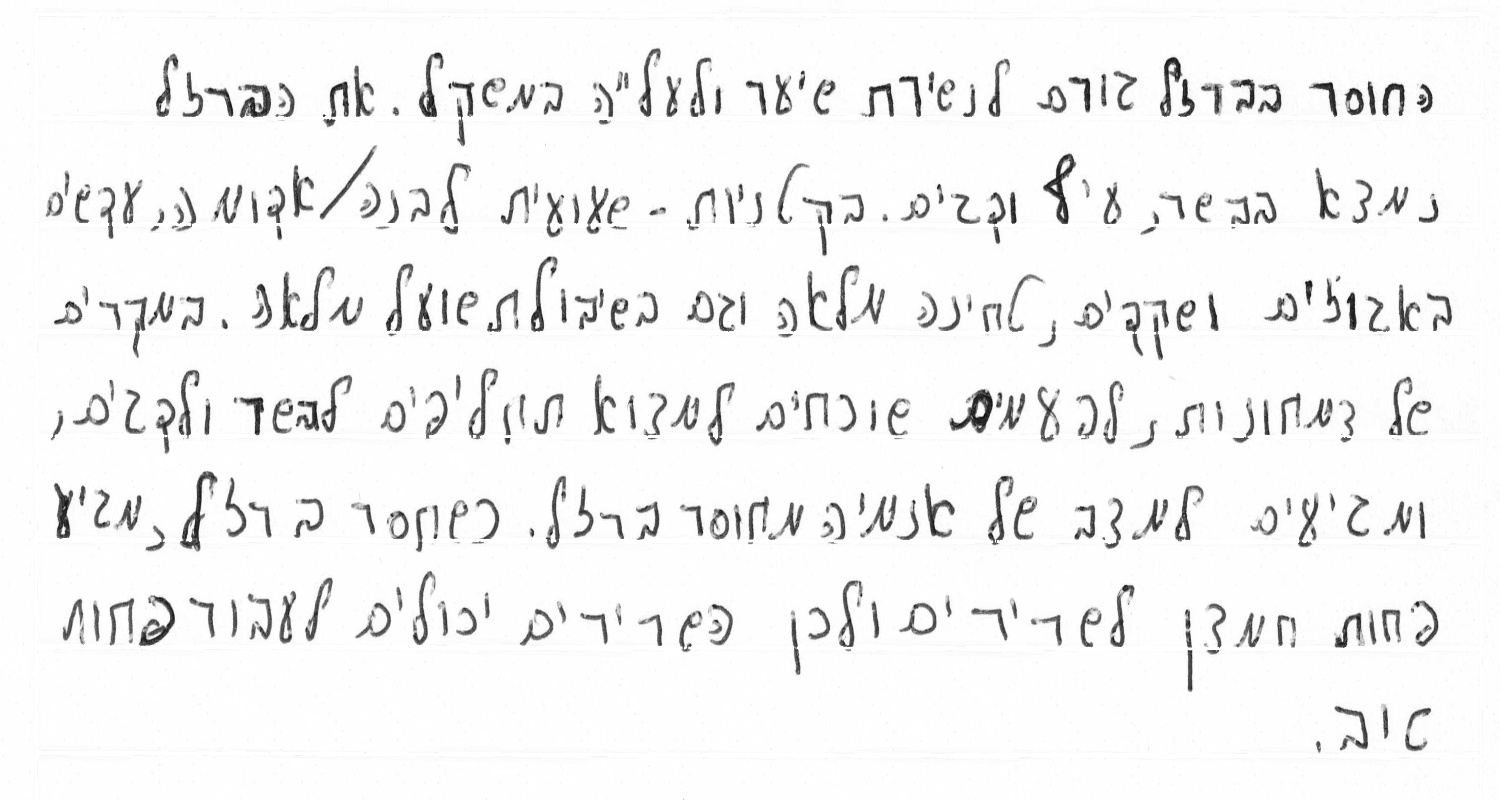 החוסר בברזל גורם לנשירת שיער ולעל"ה במשקל. את הברזל
נמצא בבשר, עוף וקבים. בקטניות - שעועית לבנה/אדומה, עדשים
באגוזים ושקדים, טחינה מלאה וגם בשיבולת שועל מלאה. במקרים
של צמחונות, לפעמים שוכחים למצוא תחליפים לבשר ולקבים,
ומגיעים למצב של אנמיה מחוסר ברזל. כשחסר ברזל, מגיע
פחות חמצן לשרירים ולכן השרירים יכולים לעבוד פחות
טיב.